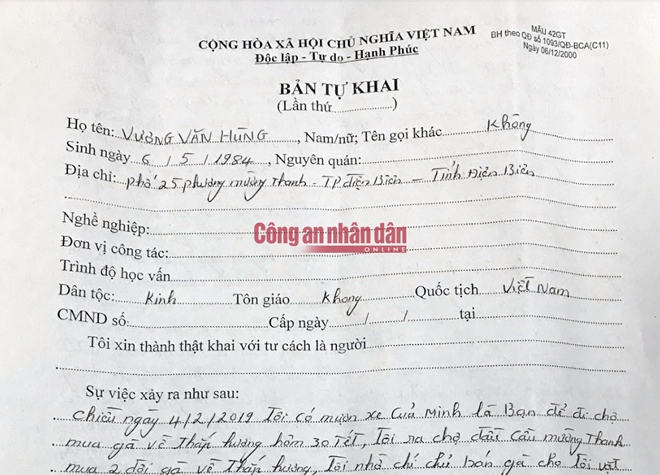 CỘNG HÒA XÃ HỘI CHỦ NGHĨA VIỆT NAM
Độc lập - Tự do - Hạnh Phúc
MẪU 42GT
BH theo QĐ số 1093/QĐ-BCA(C11)
Ngày 06/12/2000
BẢN TỰ KHAI
(Lần thứ..............)
Họ tên: VƯƠNG VĂN HÙNG, Nam/nữ; Tên gọi khác Không
Sinh ngày 6/5/1984, Nguyên quán:
Địa chỉ: phố 25 phường mường Thanh - TP điện Biên - Tỉnh Điện Biên
Nghề nghiệp:
Công an nhân dân
ONLINE
Đơn vị công tác:
Trình độ học vấn
Dân tộc: Kinh Tôn giáo Không Quốc tịch Việt Nam
CMND số: Cấp ngày / / tại
Tôi xin thành thật khai với tư cách là người
Sự việc xảy ra như sau:
chiều ngày 4/2/2019 Tôi có mượn xe Của Minh là Bạn để đi chợ
mua gà về Thắp hương hôm 30 Tết, Tôi ra chợ đầu cầu mường Thanh
mua 2 đôi gà về Thắp hương, Tôi nhờ chị chủ bán gà cho Tôi vặt